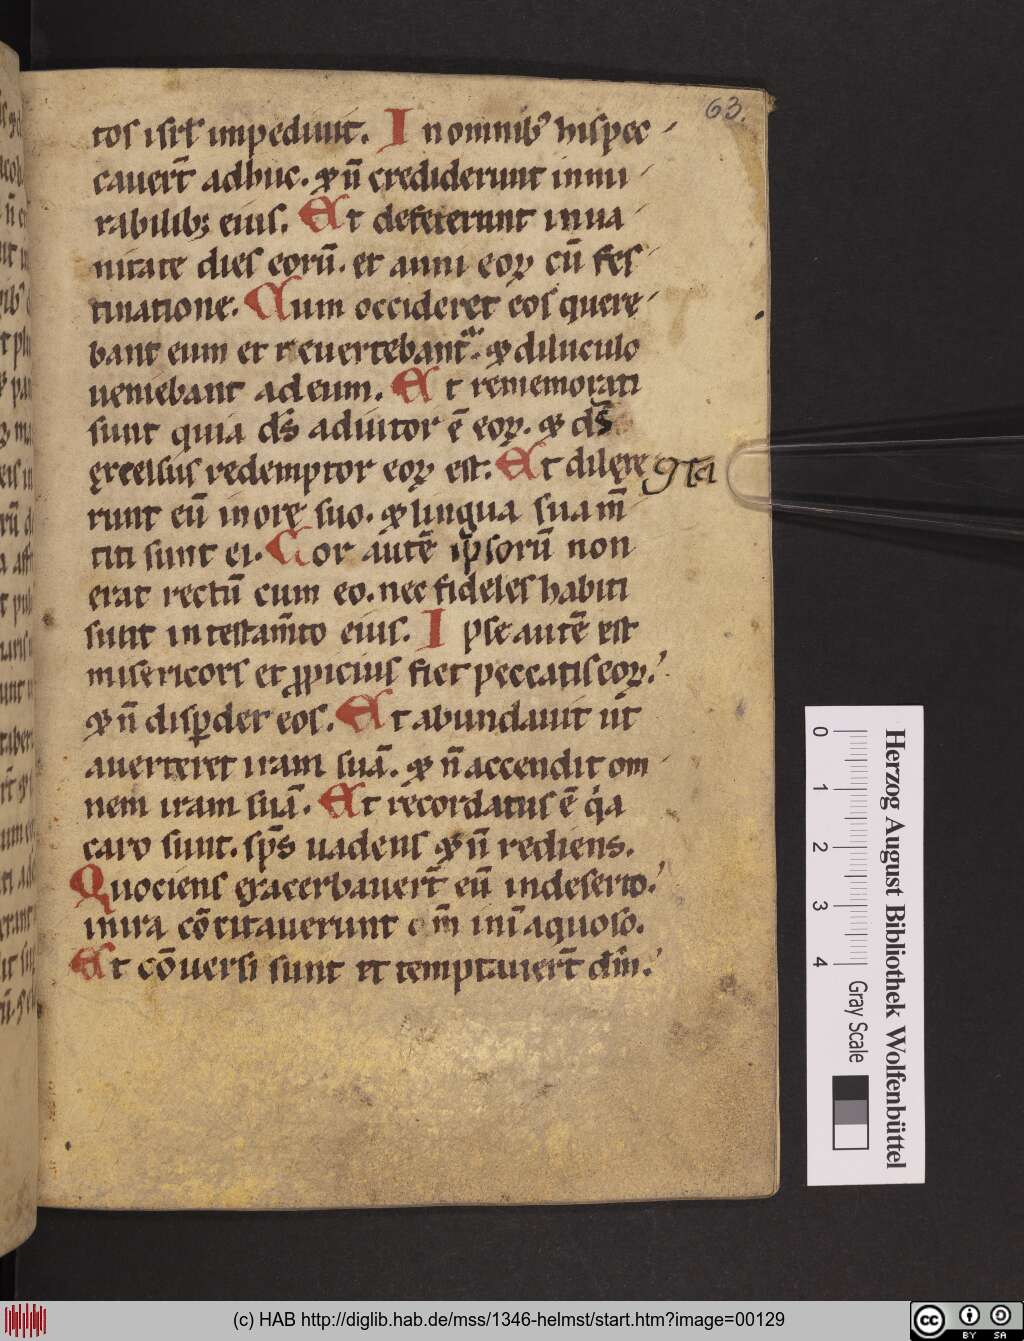 63.
tos isrł impediuit. In omnib' his pec
cauerт̄ adhuc. ⁊ n̄ crediderunt in mi
rabilib; eius. Et defecerunt in ua
nitate dies eorū. et anni eoꝝ cū fes
tinatione. Cum occideret eos quere
bant eum et reuertebant.᷒ ⁊ diluculo
ueniebant ad eum. Et rememorati
sunt quia ds̄ adiutor ē eoꝝ. ⁊ ds̄
excelsus redemptor eoꝝ est. Et dilexe
runt eū in ore suo. ⁊ lingua sua m̄
titi sunt ei. Cor autē ipsorū non
erat rectū cum eo. nec fideles habiti
sunt in testam̄to eius. Ipse autē est
misericors et ꝓpicius fiet peccatis eoꝝ.
⁊ n̄ disꝑder eos. Et abundauit ut
auerteret iram suā. ⁊ n̄ accendit om
nem iram suā. Et recordatus ē qa
caro sunt. sp̄s uadens ⁊ n̄ rediens.
Quociens exacerbauerт̄ eū in deserto.
in ira cōcitauerunt eum in inaquoso.
Et cōuersi sunt et temptauerт̄ dm̄.
Herzog August Bibliothek Wolfenbüttel
0 1 2 3 4
Gray Scale
(c) HAB http://diglib.hab.de/mss/1346-helmst/start.htm?image=00129
cc BY SA